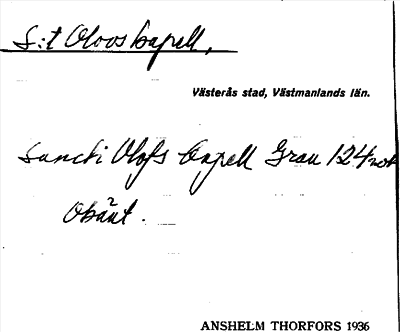 S:t Olovs kapell,
Västerås stad, Västmanlands län.
Sancti Olofs Capell Grau 124 not
Okänt.
ANSHELM THORFORS 1936